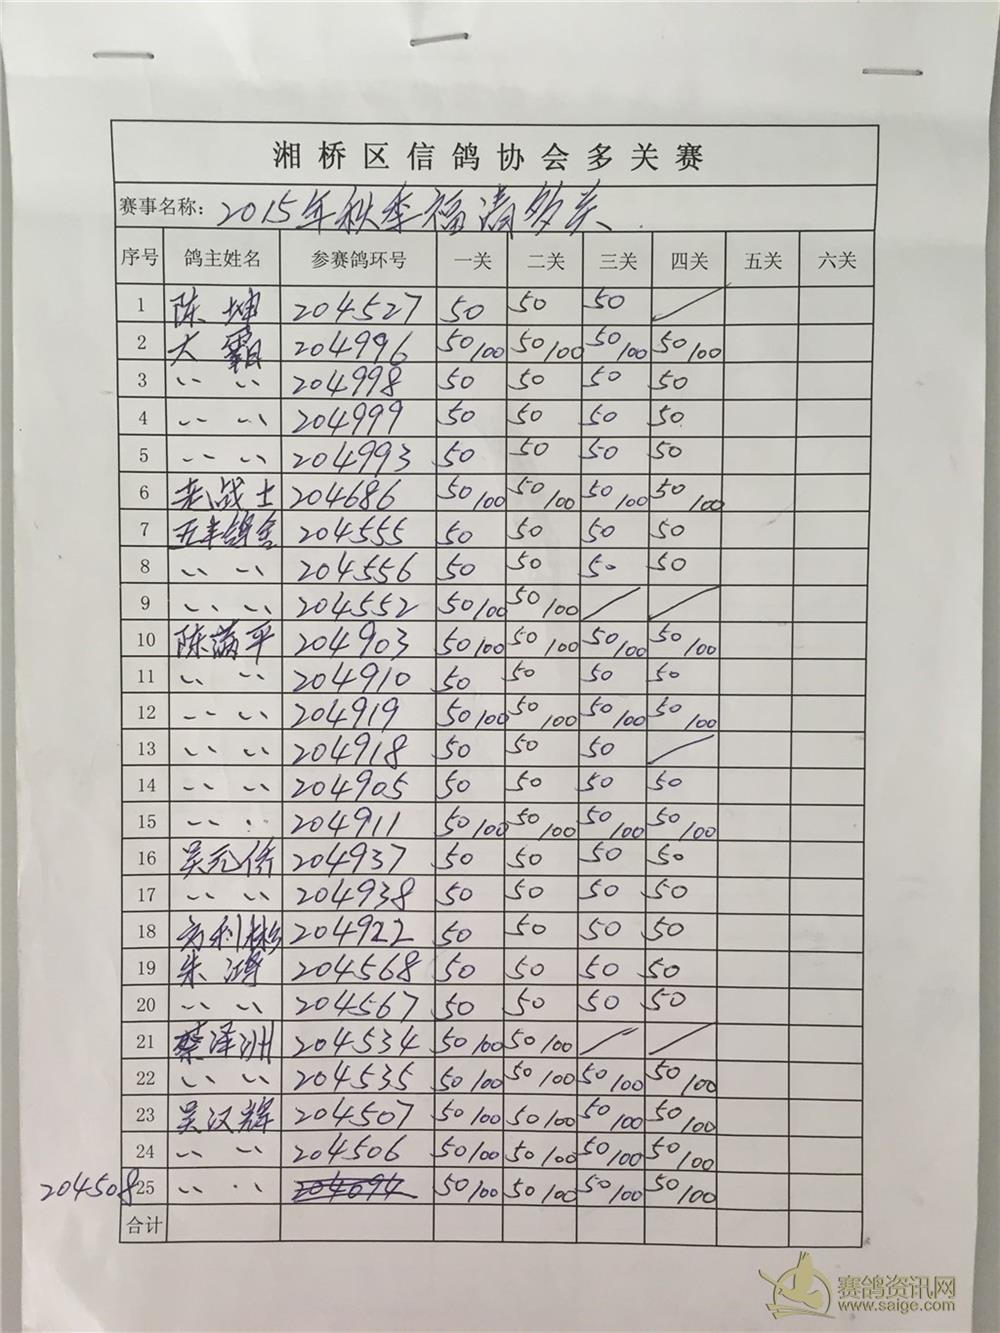 湘桥区信鸽协会多关赛
赛事名称：2015年秋季福清多关
序号 鸽主姓名 参赛鸽环号 一关 二关 三关 四关 五关 六关
1 陈坤 204527 50 50 50 /
2 大霸 204996 50/100 50/100 50/100 50/100
3 〃 〃 204998 50 50 50 50
4 〃 〃 204999 50 50 50 50
5 〃 〃 204993 50 50 50 50
6 老战士 204686 50/100 50/100 50/100 50/100
7 五丰鸽舍 204555 50 50 50 50
8 〃 〃 204556 50 50 50 50
9 〃 〃 204552 50/100 50/100 / /
10 陈满平 204903 50/100 50/100 50/100 50/100
11 〃 〃 204910 50 50 50 50
12 〃 〃 204919 50/100 50/100 50/100 50/100
13 〃 〃 204918 50 50 50 /
14 〃 〃 204905 50 50 50 50
15 〃 〃 204911 50/100 50/100 50/100 50/100
16 吴元侨 204937 50 50 50 50
17 〃 〃 204938 50 50 50 50
18 方利彬 204922 50 50 50 50
19 朱鸿 204568 50 50 50 50
20 〃 〃 204567 50 50 50 50
21 蔡泽洲 204534 50/100 50/100 / /
22 〃 〃 204535 50/100 50/100 50/100 50/100
23 吴汉辉 204507 50/100 50/100 50/100 50/100
24 〃 〃 204506 50/100 50/100 50/100 50/100
204508 25 〃 〃 50/100 50/100 50/100 50/100
合计
赛鸽资讯网
www.saige.com